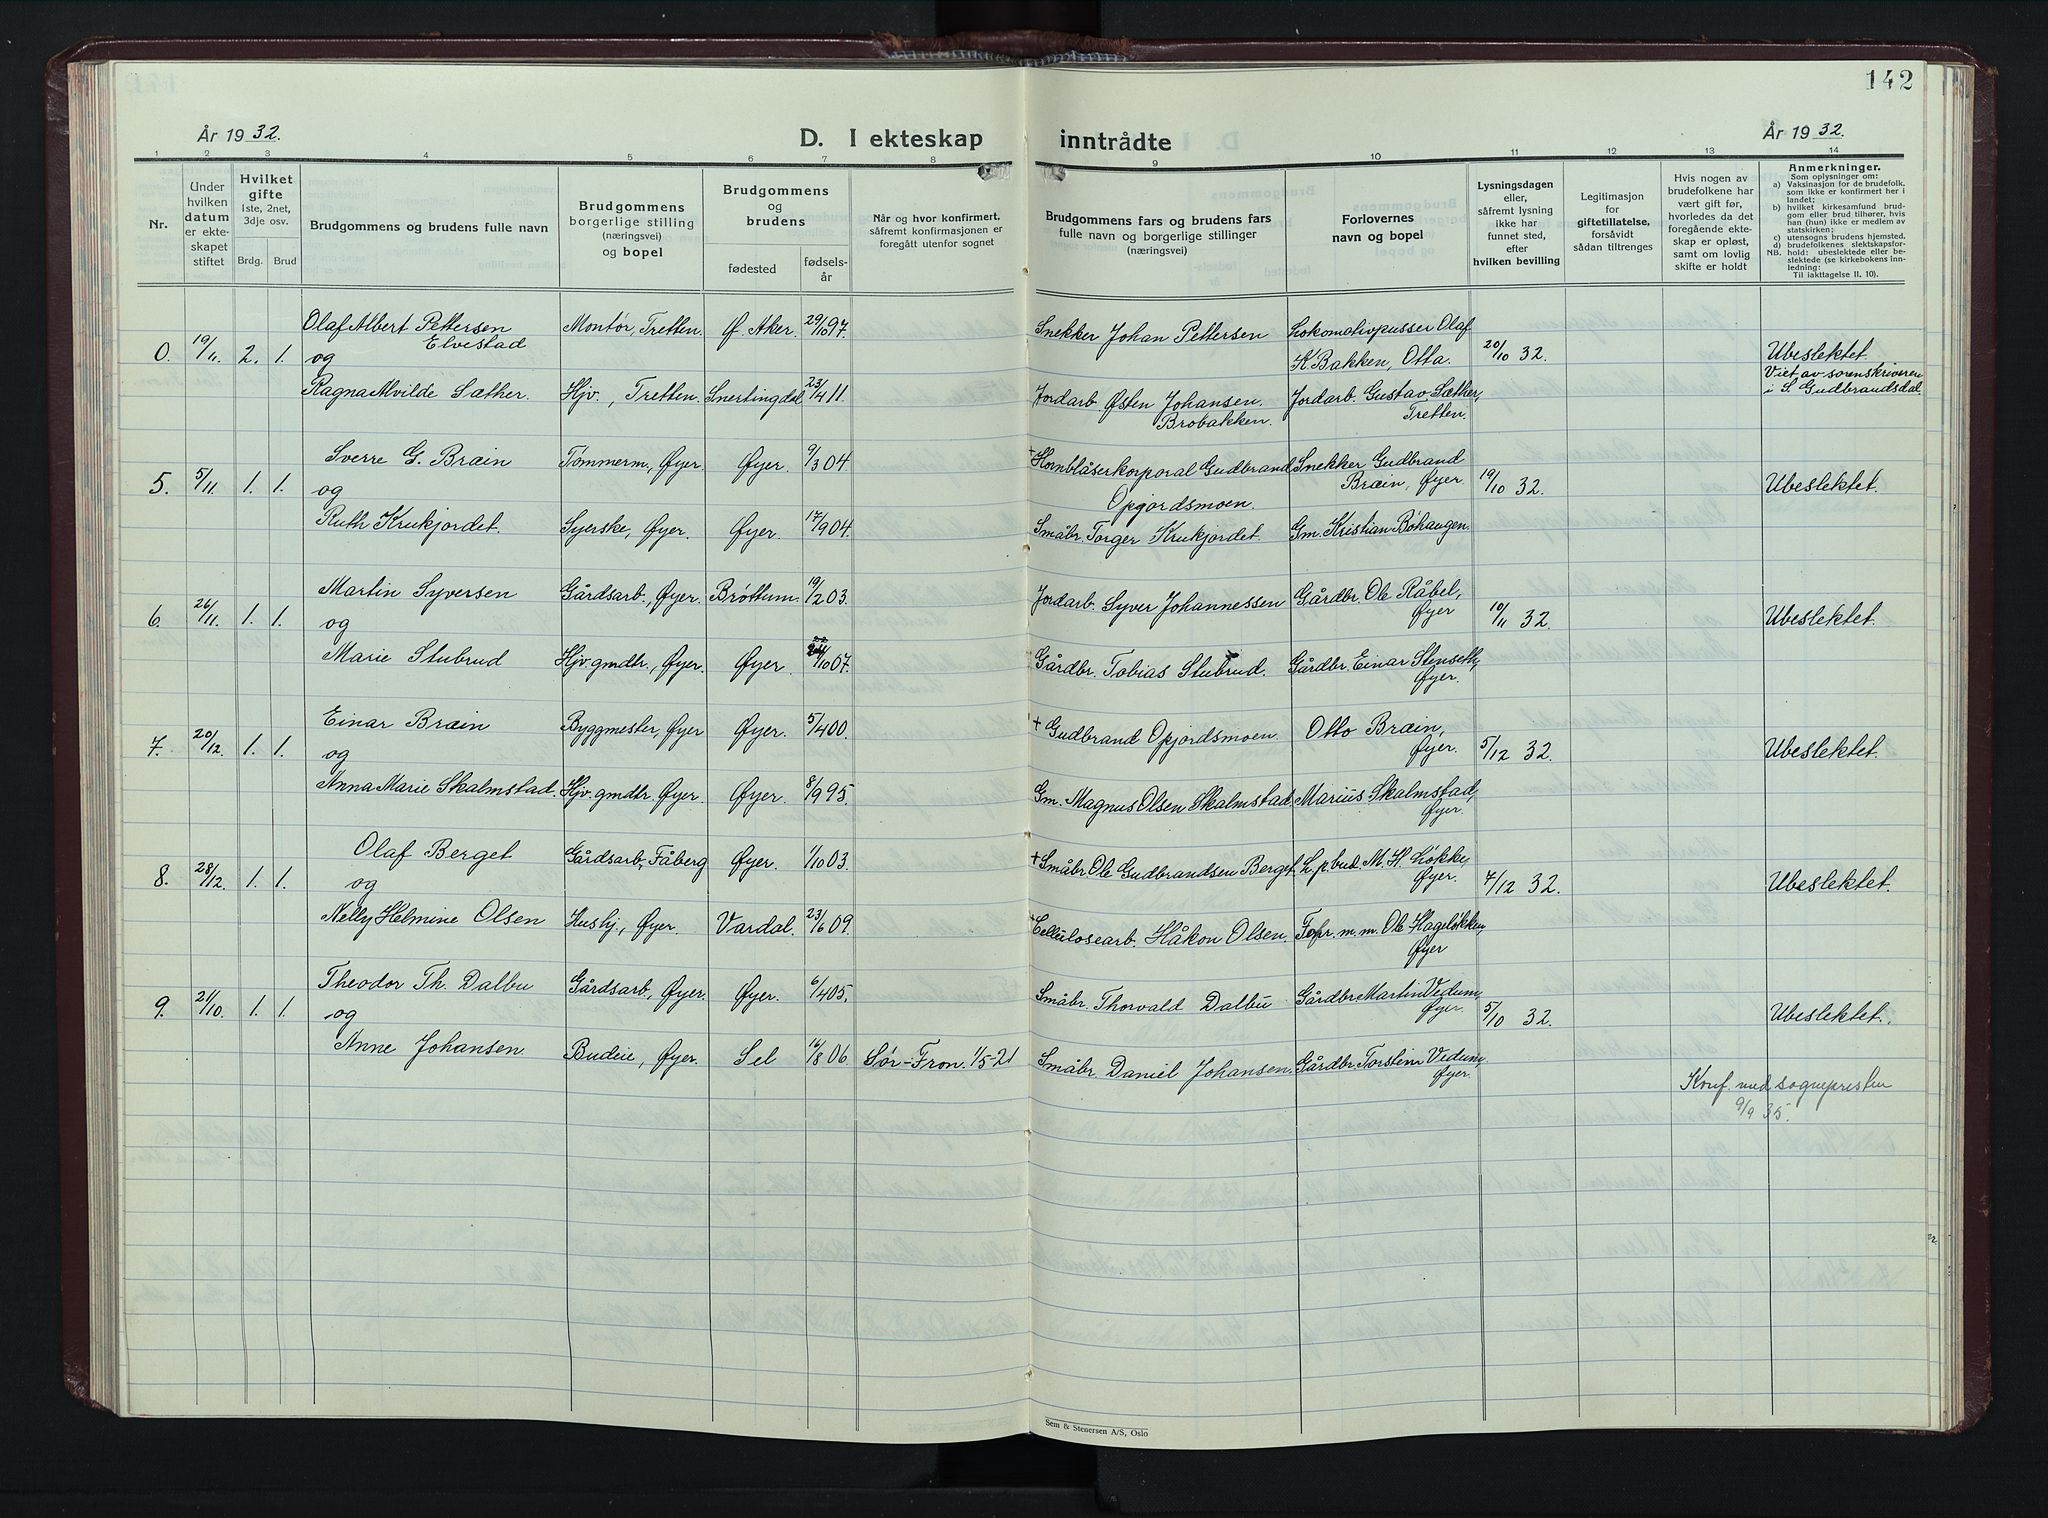 142
År 1932.
D. I ekteskap inntrådte
År 1932.
1 2 3 4 5 6 7 8 9 10 11 12 13 14
Nr.
Under
hvilken
datum
er ekte-
skapet
stiftet
Hvilket
gifte
1ste, 2net,
3dje osv.
Brdg. Brud
Brudgommens og brudens fulle navn
Brudgommens
borgerlige stilling
(næringsvei)
og bopel
Brudgommens
og
brudens
fødested
fødsels-
år
Når og hvor konfirmert,
såfremt konfirmasjonen er
foregått utenfor sognet
Brudgommens fars og brudens fars
fulle navn og borgerlige stillinger
(næringsvei)
Forlovernes
navn og bopel
Lysningsdagen
eller,
såfremt lysning
ikke har
funnet sted,
efter
hvilken bevilling
Legitimasjon
for
giftetillatelse,
forsåvidt
sådan tiltrenges
Hvis nogen av
brudefolkene har
vært gift før,
hvorledes da det
foregående ekte-
skap er opløst,
samt om lovlig
skifte er holdt
Anmerkninger.
Som oplysninger om:
a) Vaksinasjon for de brudefolk,
som ikke er konfirmert her i
landet;
b) hvilket kirkesamfund brud-
gom eller brud tilhører, hvis
han (hun) ikke er medlem av
statskirken;
c) utensogns brudens hjemsted.
d) brudefolkenes slektskapsfor-
NB. hold: ubeslektede eller be-
slektede (se kirkebokens inn-
ledning:
Til iakttagelse II. 10).
Olaf Albert Pettersen Montør, Tretten. Ø. Aker. 29/10 97. Snekker Johan Pettersen Lokomotivpusser Olaf
Elvestad
0. 19/11. 2. 1. og K. Bakken, Otta. 20/10 32. Ubeslektet.
Viet av sorenskriveren
Ragna Alvilde Sæther. Hjv., Tretten. Snertingdal 23/4 11. Jordarb. Østen Johansen Jordarb. Gustav Sæther, i S. Gudbrandsdal.
Brobakken. Tretten.
Sverre G. Bræin Tømmerm., Øyer. Øyer. 9/3 04. + Hornblåserkorporal Gudbrand Snekker Gudbrand
5. 5/11. 1. 1. og Opjordsmoen. Bræin, Øyer. 19/10 32. Ubeslektet.
Ruth Krukjordet. Syerske, Øyer. Øyer. 17/9 04. Småbr. Torger Krukjordet. Gm. Kristian Bøhaugen.
Martin Syversen Gårdsarb., Øyer. Brøttum. 19/2 03. Jordarb. Syver Johannessen Gårdbr. Ole Råbel,
6. 26/11. 1. 1. og Øyer 10/11 32. Ubeslektet.
Marie Stubrud Hjv. gmdtr., Øyer. Øyer. 22/10 07. Gårdbr. Tobias Stubrud. Gårdbr. Einar Stenseth,
Øyer.
Einar Bræin Byggmester, Øyer Øyer. 5/4 00. + Gudbrand Opjordsmoen. Otto Bræin,
7. 20/12. 1. 1. og Øyer. 5/12 32. Ubeslektet.
Anna Marie Skalmstad. Hjv. gmdtr. Øyer. Øyer. 8/9 95. Gm. Magnus Olsen Skalmstad. Marius Skalmstad,
Øyer.
Olaf Berget Gårdsarb., Fåberg Øyer. 1/10 03. + Småbr. Ole Gudbrandsen Berget. L.p.bud. M. H. Løkke
8. 28/12. 1. 1. og Øyer. 7/12 32. Ubeslektet.
Nelly Helmine Olsen Hushj., Øyer. Vardal. 23/6 09. + Cellulosearb. Håkon Olsen. Fopr. m.m. Ole Hageløkken,
Øyer
Theodor Th. Dalbu Gårdsarb., Øyer. Øyer. 6/4 05. Småbr. Thorvald Dalbu Gårdbr. Martin Vedum,
9. 21/10. 1. 1. og Øyer. 5/10 32. Ubeslektet.
Anne Johansen Budeie, Øyer. Sel 16/8 06. Sør-Fron. 1/5-21 Småbr. Daniel Johansen. Gårdbr. Torstein Vedum,
Øyer.
Konf. med sognepresten
9/9 35.
Sem & Stenersen A/S, Oslo